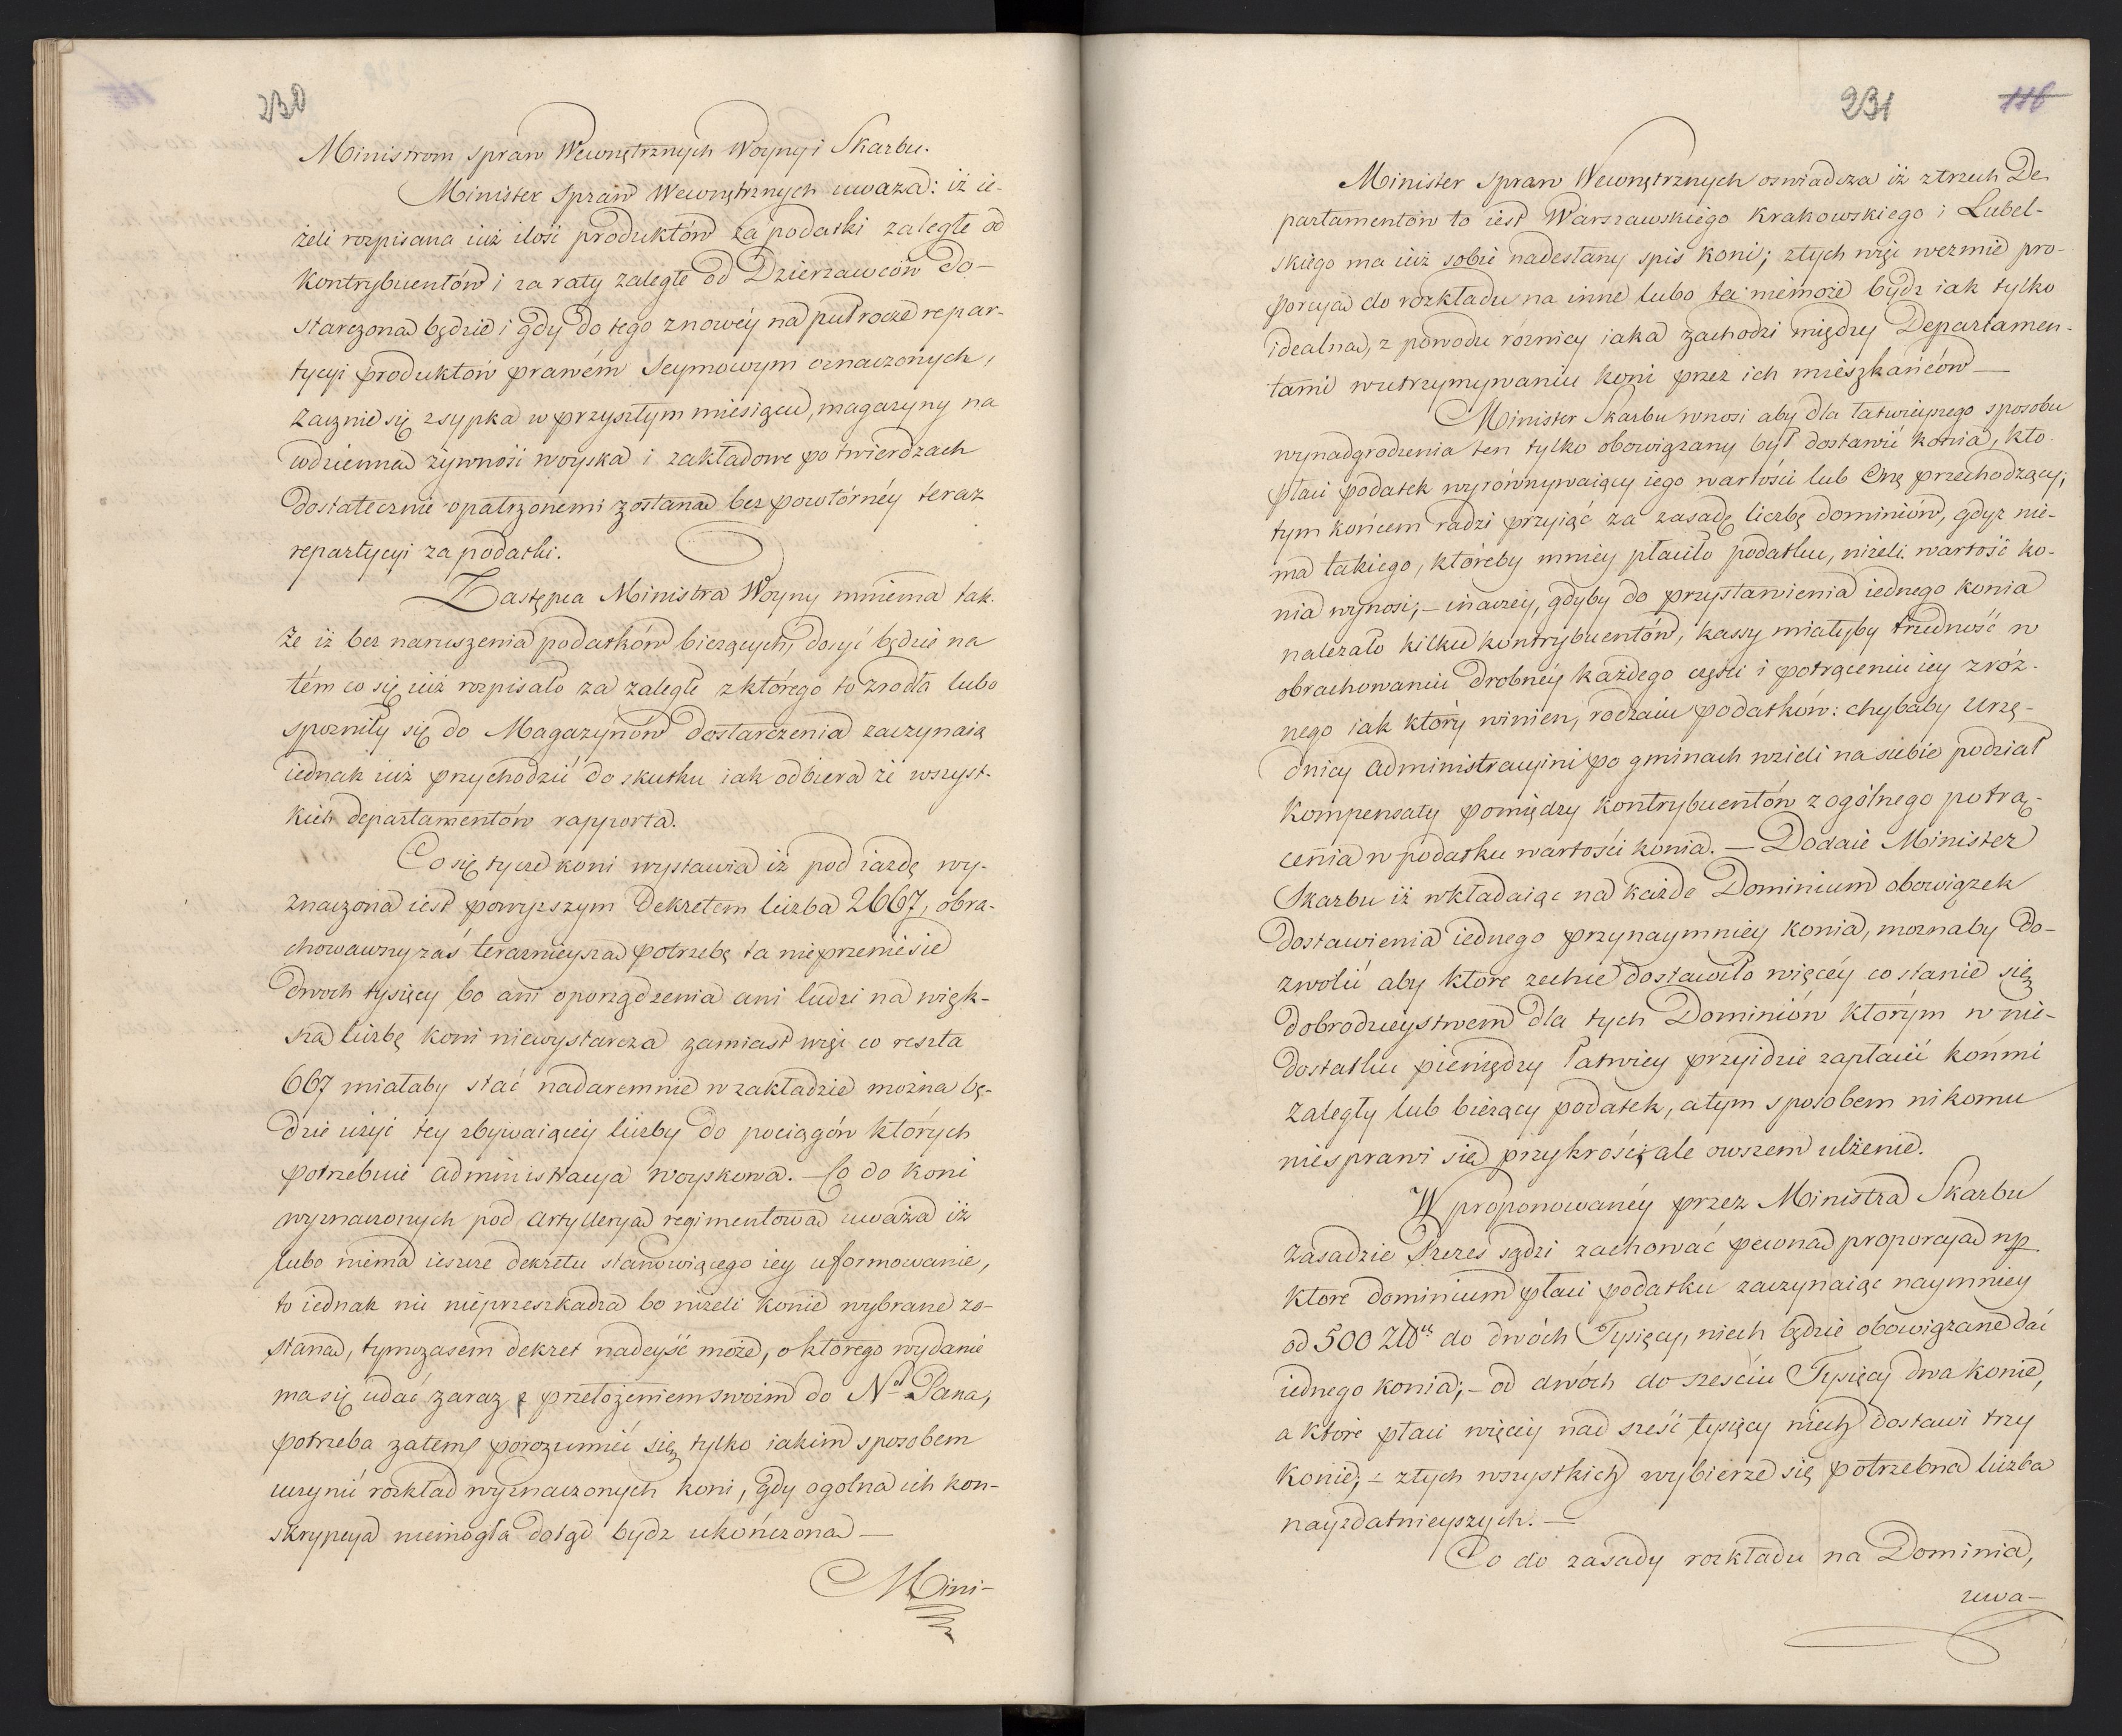 230
Ministrom spraw Wewnętrznych Woyny i Skarbu.
Minister Spraw Wewnętrznych uważa: iż ie-
żeli rozpisana iuż ilość produktów za podatki zaległe od
kontrybuentów i za raty zaległe od Dzierzawców do-
starczona będzie i gdy do tego znowéy na pułrocze repar-
tycyi produktów prawém Seymowym oznaczonych,
zacznie się zsypka w przyszłym miesiącu, magazyny na
codzienną żywność woyska i zakładowe po twierdzach
dostatecznie opatrzonemi zostaną bez powtórnéy teraz
repartycyi za podatki.
Zastępca Ministra Woyny mniema tak-
że iż bez naruszenia podatków bieżących, dosyć będzie na
tém co się iuż rozpisało za zaległe z którego to zrodła lubo
spozniły się do Magazynów dostarczenia zaczynaią
iednak iuż przychodzić do skutku iak odbiera ze wszyst-
kich departamentów rapporta.
Co się tycze koni wystawia iż pod iazdę wy-
znaczona iest powyższym Dekretem liczba 2667, obra-
chowawszy zaś teraznieyszą potrzebę ta nieprzeniesie
dwoch tysięcy, bo ani oporządzenia ani ludzi na więk-
szą liczbę koni niewystarcza zamiast więc co reszta
667 miałaby stać nadaremnie w zakładzie można bę-
dzie użyć tey zbywaiącéy liczby do pociągów których
potrzebuie administracya woyskowa. – Co do koni
wyznaczonych pod artylleryą regimentową uważa iż
lubo niema ieszcze dekretu stanowiącego iey uformowanie,
to iednak nic nieprzeszkadza bo niżeli konie wybrane zo-
staną, tymczasem dekret nadeyść może, o którego wydanie
ma się udać zaraz z przełożeniem swoim do N.go Pana,
potrzeba zatem porozumieć się tylko iakim sposobem
uczynić rozkład wyznaczonych koni, gdy ogolna ich kon-
skrypcya niemogła dotąd bydz ukończona —
Mini-
231
116
Minister Spraw Wewnętrznych oswiadcza iż z trzech De-
partamentów to iest Warszawskiego Krakowskiego i Lubel-
skiego ma iuż sobie nadesłany spis koni; z tych więc wezmie pro-
porcyą do rozkładu na inne lubo ta niemoże bydz iak tylko
idealną, z powodu różnicy iaka zachodzi między Departamen-
tami w utrzymywaniu koni przez ich mieszkańców —
Minister Skarbu wnosi aby dla łatwieyszego sposobu
wynadgrodzenia ten tylko obowiązany był dostawić konia, kto
płaci podatek wyrównywaiący iego wartości lub Onę przechodzący;
tym końcem radzi przyiąć za zasadę liczbę dominiów, gdyż nie-
ma takiego, któreby mniey płaciło podatku, niżeli wartość ko-
nia wynosi; – inaczey, gdyby do przystawienia iednego konia
należało kilku kontrybuentów, kassy miałyby trudność w
obrachowaniu drobnéy każdego części i potrąceniu iey z róż-
nego iak który winien, rodzaiu podatków: chybaby Urzę-
dnicy administracyini po gminach wzieli na siebie podział
kompensaty pomiędzy kontrybuentów z ogólnego potrą-
cenia w podatku wartości konia. — Dodaie Minister
Skarbu iż wkładaiąc na każde Dominium obowiązek
dostawienia iednego przynaymniey konia, możnaby do-
zwolić aby ktore zechce dostawiło więcéy co stanie się
dobrodzieystwem dla tych Dominiów którym w nie-
dostatku pieniędzy łatwiey przyidzie zapłacić końmi
zaległy lub bieżący podatek, a tym sposobem nikomu
niesprawi się przykrości, ale owszem ulżenie.
W proponowanéy przez Ministra Skarbu
zasadzie Prezes sądzi zachować pewną proporcyą np
ktore dominium płaci podatku zaczynaiąc naymniey
od 500 Złł.ch do dwóch Tysięcy, niech będzie obowiązane dać
iednego konia; – od dwóch do sześciu Tysięcy dwa konie,
a ktore płaci więcéy nad sześć tysięcy niech dostawi trzy
konie; – z tych wszystkich wybierze się potrzebna liczba
nayzdatnieyszych. —
Co do zasady rozkładu na Dominia,
uwa-